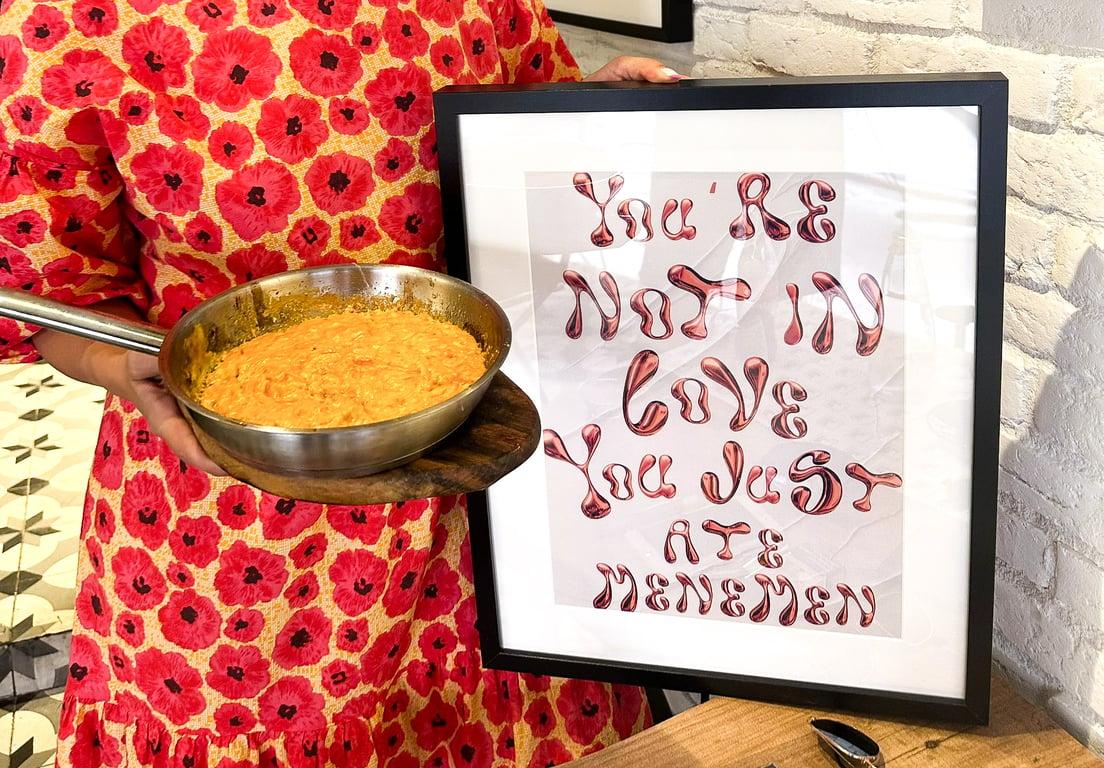 You'RE
NOT IN
LOVE
You JuST
ATE
MENEMEN